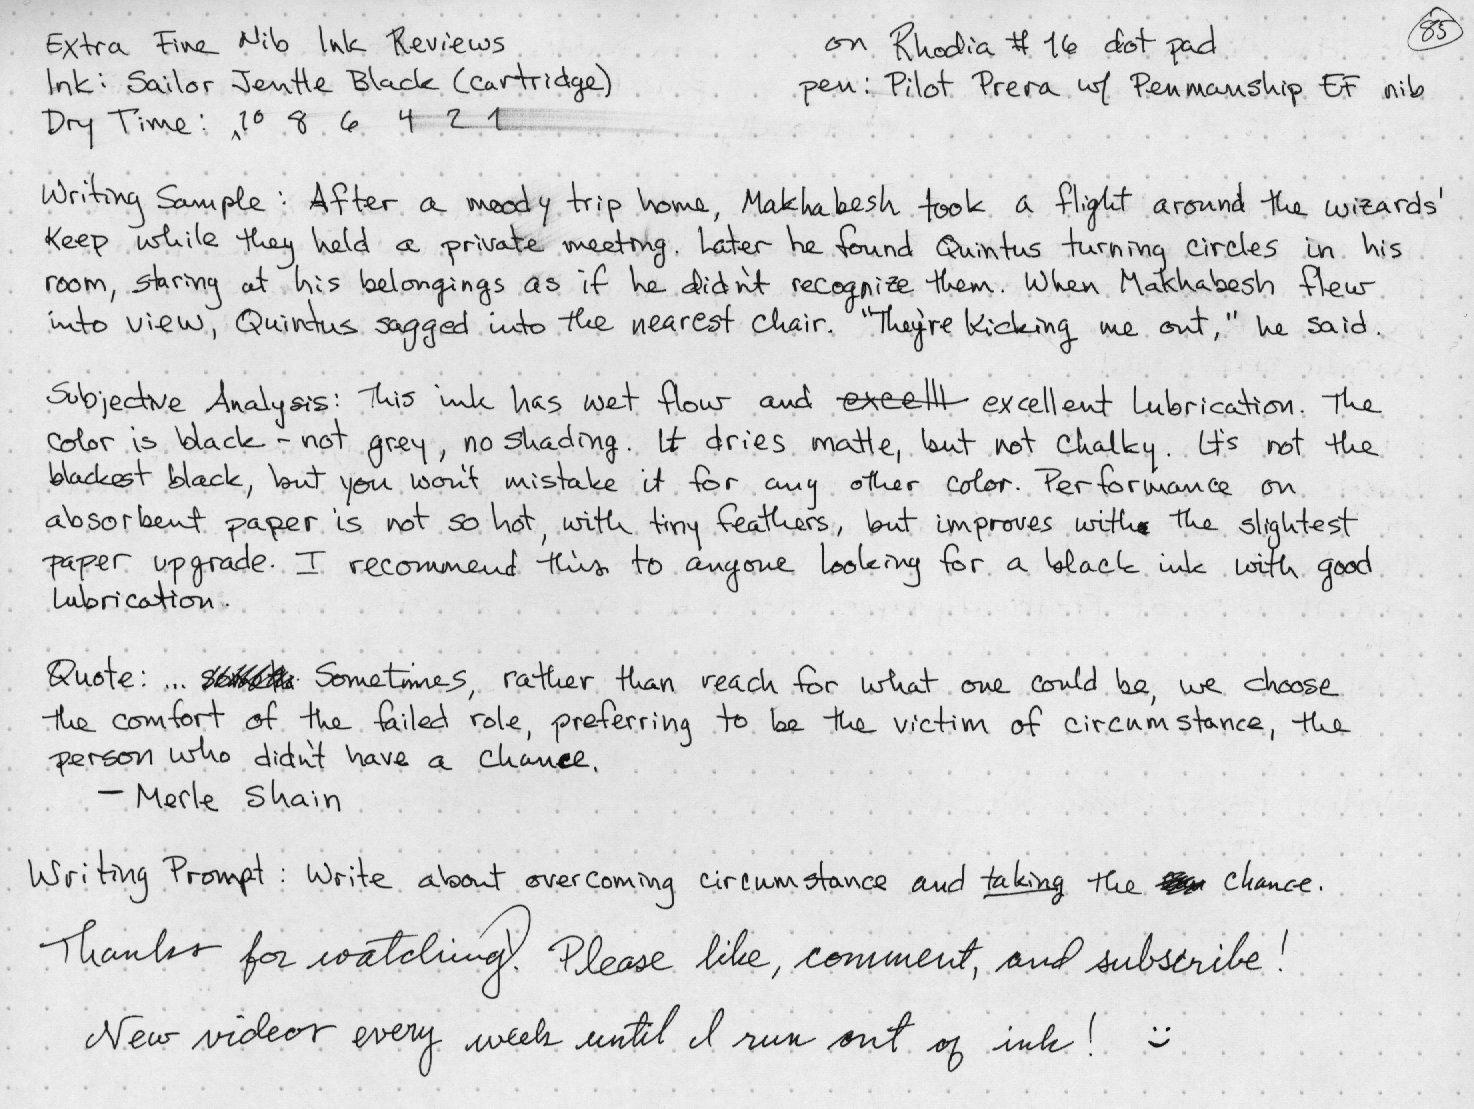 85
Extra Fine Nib Ink Reviews on Rhodia #16 dot pad
Ink: Sailor Jentle Black (cartridge) pen: Pilot Prera w/ Penmanship EF nib
Dry Time: 10 8 6 4 2 1
Writing Sample: After a moody trip home, Makhabesh took a flight around the wizards'
Keep while they held a private meeting. Later he found Quintus turning circles in his
room, staring at his belongings as if he didn't recognize them. When Makhabesh flew
into view, Quintus sagged into the nearest chair. "They're kicking me out," he said.
Subjective Analysis: This ink has wet flow and excellt excellent lubrication. The
color is black - not grey, no shading. It dries matte, but not chalky. It's not the
blackest black, but you won't mistake it for any other color. Performance on
absorbent paper is not so hot, with tiny feathers, but improves with the slightest
paper upgrade. I recommend this to anyone looking for a black ink with good
lubrication.
Quote: ... Sometimes, rather than reach for what one could be, we choose
the comfort of the failed role, preferring to be the victim of circumstance, the
person who didn't have a chance.
- Merle Shain
Writing Prompt: Write about overcoming circumstance and taking the chance.
Thanks for watching! Please like, comment, and subscribe!
New videos every week until I run out of ink! :)